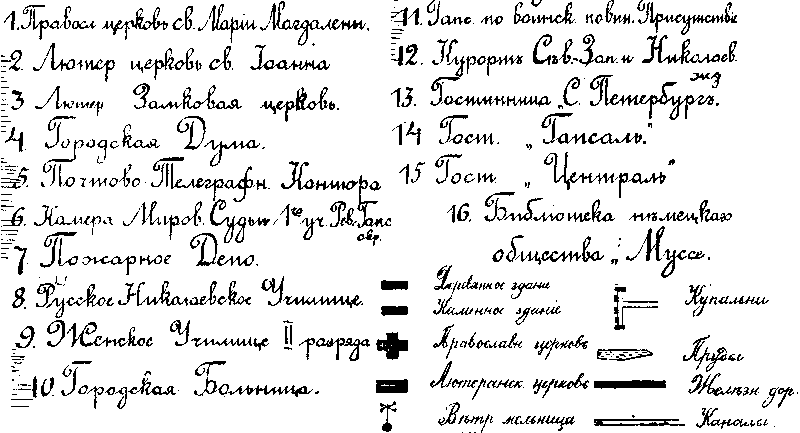 1. Правосл церковь св. Маріи Магдалены.
2. Лютер церковь св. Іоанна
3 Лютер Замковая церковь.
4 Городская Дума.
5. Почтово-Телеграфн. Контора
6. Камера Миров. Судьи 1го уч. Рев. Гапс окр.
7 Пожарное Депо.
8. Русское Николаевское Училище.
9. Женское Училище II разряда
10. Городская Больница.
11. Гапс. по воинск. повин. Присутствіе
12. Курортъ Сѣв.-Зап. и Николаев. жд
13. Гостинница „С. Петербургъ.
14 Гост. „Гапсаль."
15 Гост. „Централь"
16. Библіотека нѣмецкаго
общества „Муссе.
Деревянное здані
Каменное зданіе
Православн церковь
Лютеранск. церковь
Вѣтр мельница
Купальни
Пруды
Желѣзн дор.
Каналы.